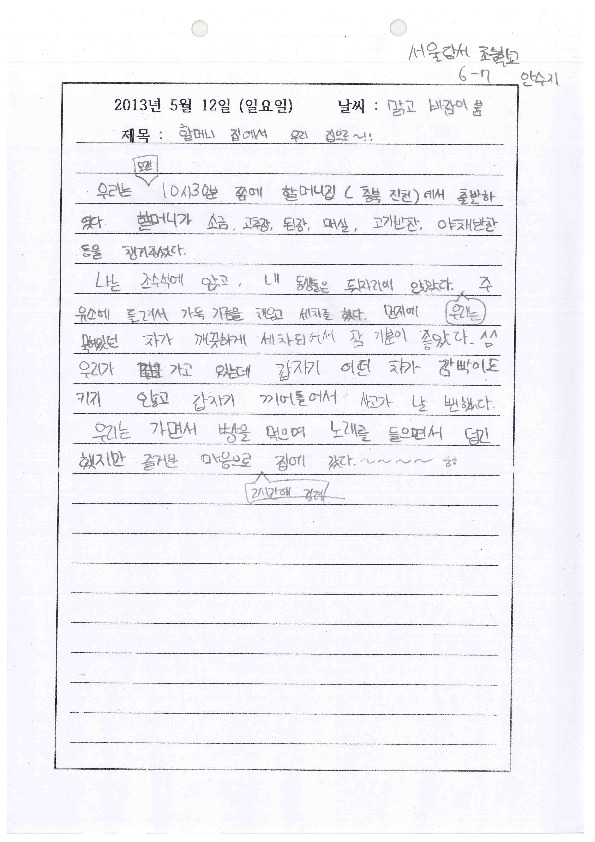 서울당서 초등학교
6-7 안수지
2013년 5월 12일 (일요일) 날씨 : 맑고 바람이 붊
제목 : 할머니 집에서 우리 집으로~!!
오전
우리는 10시30분 쯤에 할머니집 (충북 진천)에서 출발하
였다. 할머니가 소금, 고추장, 된장, 매실, 고기반찬, 야채반찬
등을 챙겨주셨다.
나는 조수석에 앉고, 내 동생들은 뒷자리에 앉았다. 주
유소에 들려서 가득 기름을 채우고 세차를 했다. 먼지에 우리는
차가 깨끗하게 세차되어서 참 기분이 좋았다.
우리가 길을 가고 있는데 갑자기 어떤 차가 깜빡이도
키지 않고 갑자기 끼어들어서 사고가 날 뻔했다.
우리는 가면서 빵을 먹으며 노래를 들으면서 덥긴
했지만 즐거운 마음으로 집에 갔다.~~~~~ ㅎㅎ
2시간에 걸려